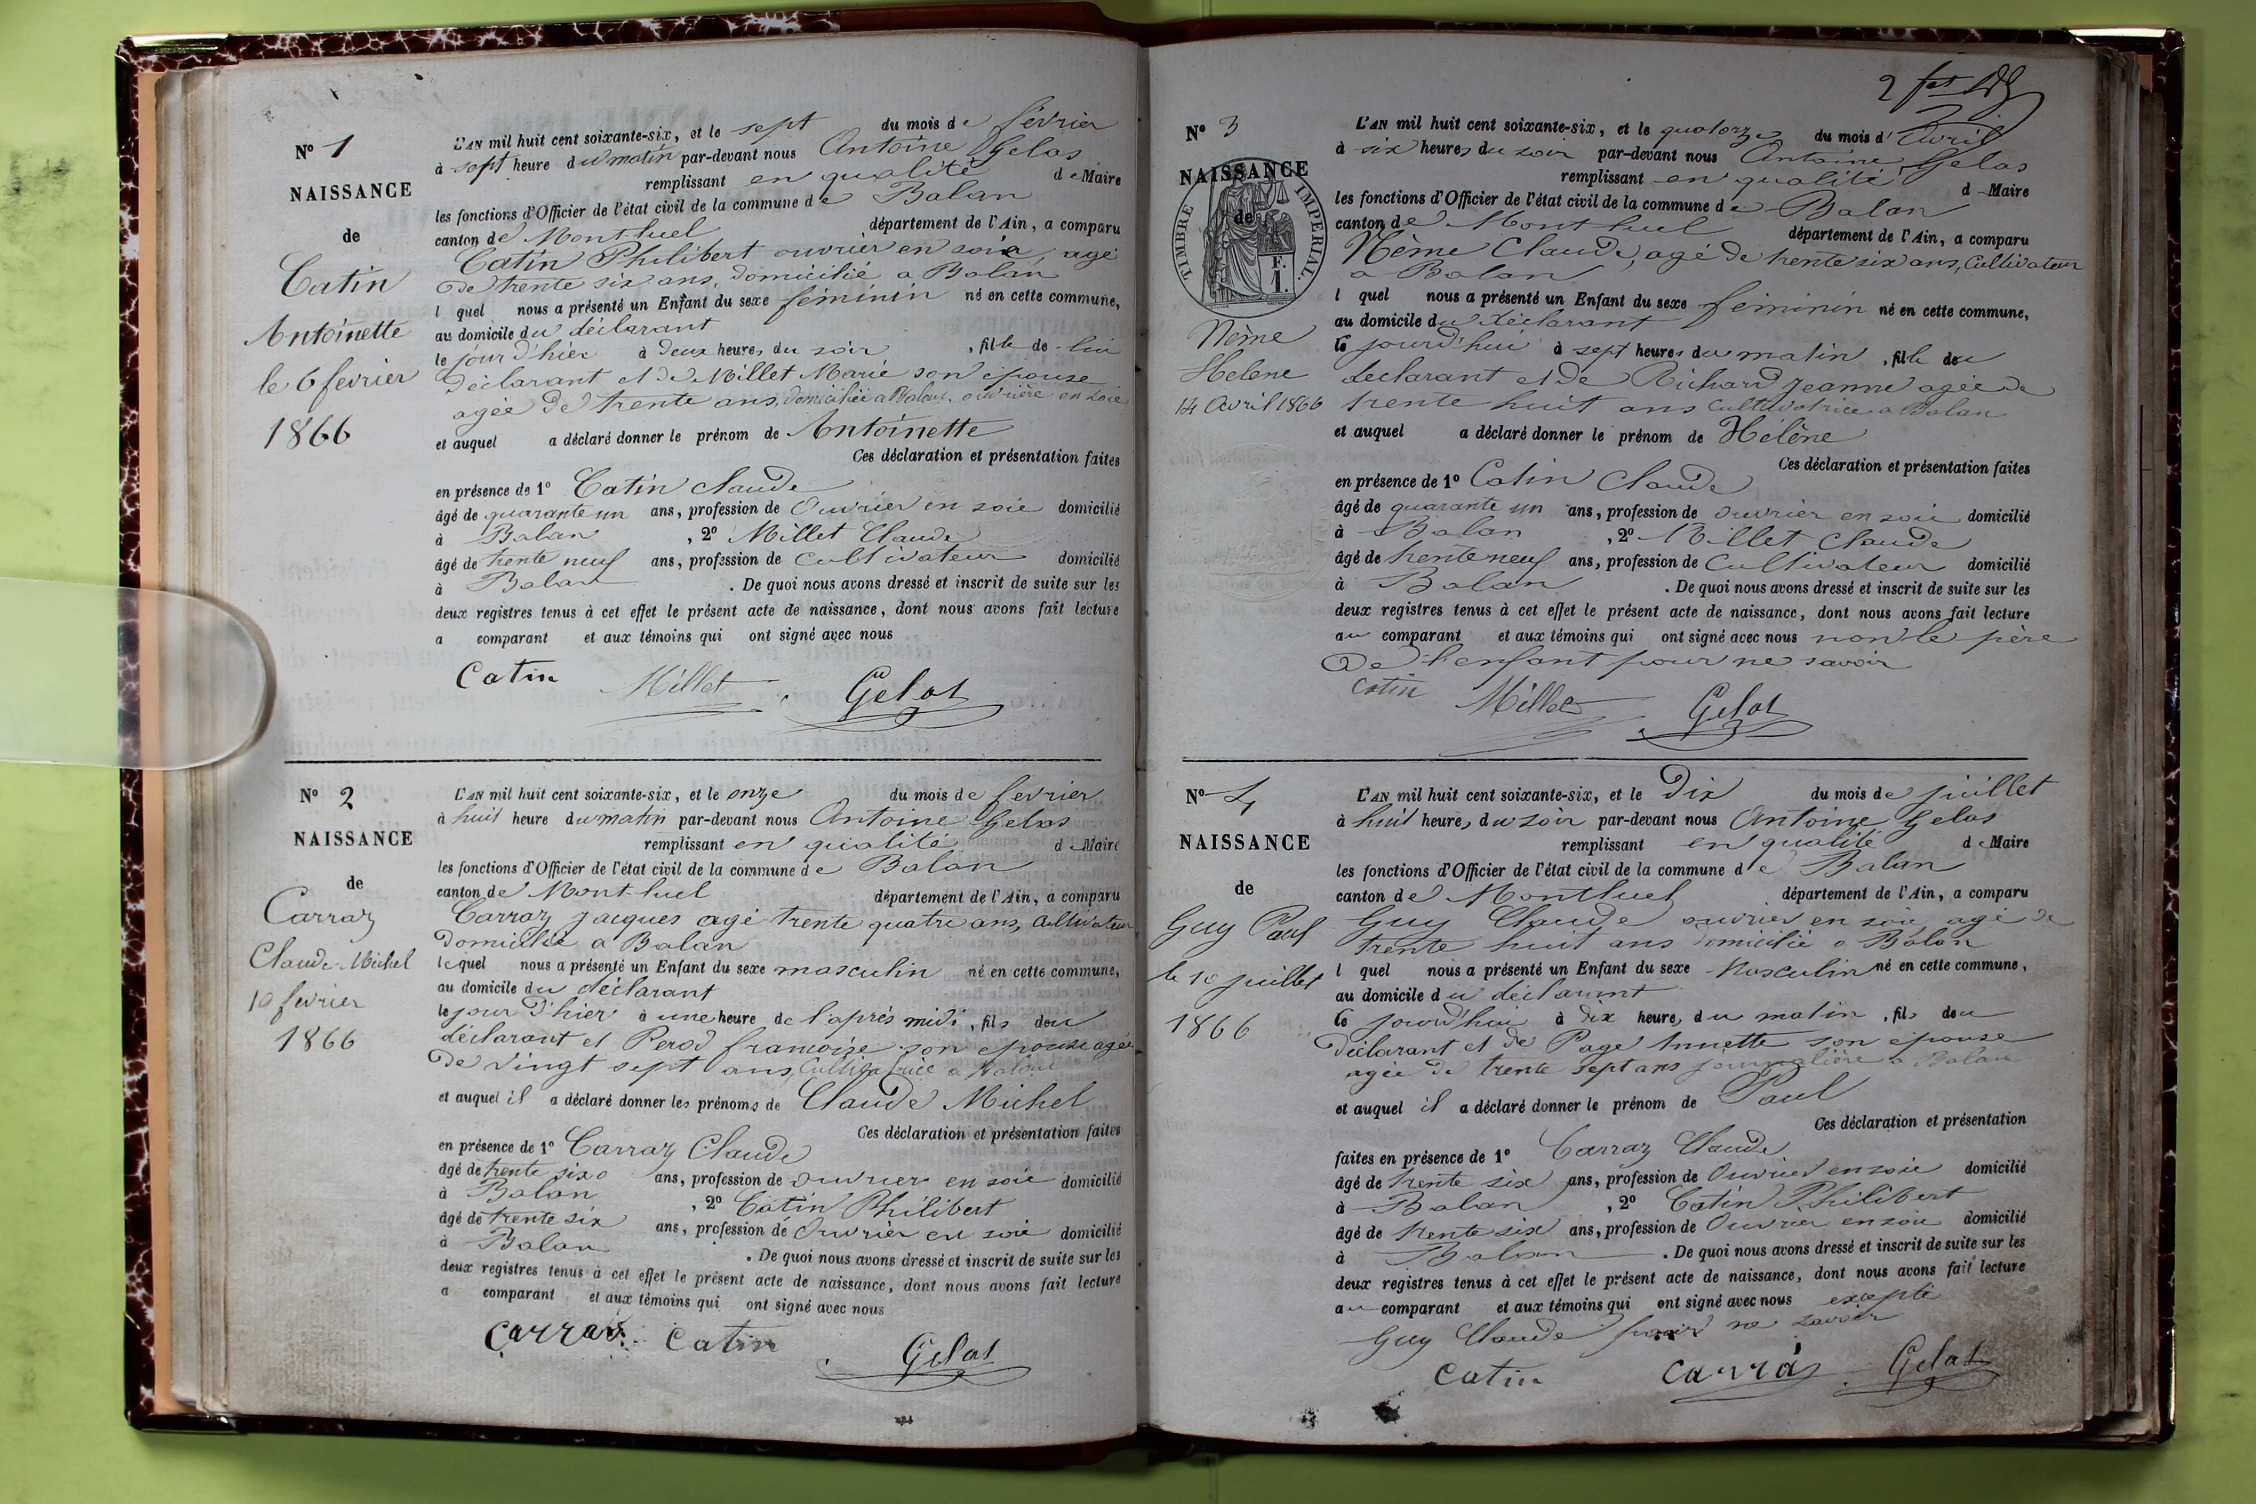 N° 1
NAISSANCE
de
Catin
Antoinette
le 6 fevrier
1866
L'AN mil huit cent soixante-six, et le sept du mois de fevrier
à sept heure du matin par-devant nous Antoine Gelas
remplissant en qualité de Maire
les fonctions d'Officier de l'état civil de la commune de Balan
canton de Montluel département de l'Ain, a comparu
Catin Philibert ouvrier en soie, agé
de trente six ans, domicilié a Balan
l quel nous a présenté un Enfant du sexe féminin né en cette commune,
au domicile du déclarant
le jour d'hier à deux heures du soir, fille de lui
déclarant et de Millet Marie son épouse
agée de trente ans, domiciliée a Balan, ouvrière en soie
et auquel a déclaré donner le prénom de Antoinette
Ces déclaration et présentation faites
en présence de 1° Catin Claude
âgé de quarante un ans, profession de Ouvrier en soie domicilié
à Balan, 2° Millet Claude
âgé de trente neuf ans, profession de cultivateur domicilié
à Balan. De quoi nous avons dressé et inscrit de suite sur les
deux registres tenus à cet effet le présent acte de naissance, dont nous avons fait lecture
a comparant et aux témoins qui ont signé avec nous
Catin Millet Gelas
N° 2
NAISSANCE
de
Carraz
Claude Michel
10 fevrier
1866
L'AN mil huit cent soixante-six, et le onze du mois de fevrier
à huit heure du matin par-devant nous Antoine Gelas
remplissant en qualité de Maire
les fonctions d'Officier de l'état civil de la commune de Balan
canton de Montluel département de l'Ain, a comparu
Carraz Jacques agé trente quatre ans, cultivateur
domicilié a Balan
lequel nous a présenté un Enfant du sexe masculin né en cette commune,
au domicile du déclarant
le jour d'hier à une heure de l'après midi, fils de du
déclarant et Perod francoise son epouse agée
de vingt sept ans, Cultivatrice a Balan
et auquel il a déclaré donner les prénoms de Claude Michel
Ces déclaration et présentation faites
en présence de 1° Carraz Claude
âgé de trente six ans, profession de ouvrier en soie domicilié
à Balan, 2° Catin Philibert
âgé de trente six ans, profession de Ouvrier en soie domicilié
à Balan. De quoi nous avons dressé et inscrit de suite sur les
deux registres tenus à cet effet le présent acte de naissance, dont nous avons fait lecture
a comparant et aux témoins qui ont signé avec nous
Carraz Catin Gelas
2
N° 3
NAISSANCE
de
TIMBRE IMPERIAL.
F.
1.
Nème
Helene
14 Avril 1866
L'AN mil huit cent soixante-six, et le quatorze du mois d'Avril
à six heures du soir par-devant nous Antoine Gelas
remplissant en qualité d Maire
les fonctions d'Officier de l'état civil de la commune de Balan
canton de Montluel département de l'Ain, a comparu
Nème Claude, agé de trente six ans, Cultivateur
a Balan
l quel nous a présenté un Enfant du sexe féminin né en cette commune,
au domicile du déclarant
le jourd'hui à sept heures du matin, fille du
declarant et de Richard Jeanne agée de
trente huit ans cultivatrice a Balan
et auquel a déclaré donner le prénom de Helène
Ces déclaration et présentation faites
en présence de 1° Catin Claude
âgé de quarante un ans, profession de ouvrier en soie domicilié
à Balan, 2° Millet Claude
âgé de trente neuf ans, profession de Cultivateur domicilié
à Balan. De quoi nous avons dressé et inscrit de suite sur les
deux registres tenus à cet effet le présent acte de naissance, dont nous avons fait lecture
au comparant et aux témoins qui ont signé avec nous non le père
de l'enfant pour ne savoir
Catin Millet Gelas
N° 4
NAISSANCE
de
Guy Paul
le 10 juillet
1866
L'AN mil huit cent soixante-six, et le Dix du mois de juillet
à huit heures du soir par-devant nous Antoine Gelas
remplissant en qualité de Maire
les fonctions d'Officier de l'état civil de la commune de Balan
canton de Montluel département de l'Ain, a comparu
Guy Claude ouvrier en soie, agé de
trente huit ans domicilié a Balan
l quel nous a présenté un Enfant du sexe Masculin né en cette commune,
au domicile du déclarant
le jourd'hui à dix heures du matin, fils du
déclarant et de Page Annette son épouse
agée de trente sept ans journalière a Balan
et auquel il a déclaré donner le prénom de Paul
Ces déclaration et présentation
faites en présence de 1° Carraz Claude
âgé de trente six ans, profession de Ouvrier en soie domicilié
à Balan, 2° Catin Philibert
âgé de trente six ans, profession de Ouvrier en soie domicilié
à Balan. De quoi nous avons dressé et inscrit de suite sur les
deux registres tenus à cet effet le présent acte de naissance, dont nous avons fait lecture
au comparant et aux témoins qui ont signé avec nous excepté
Guy Claude pour ne savoir
Catin Carra Gelas